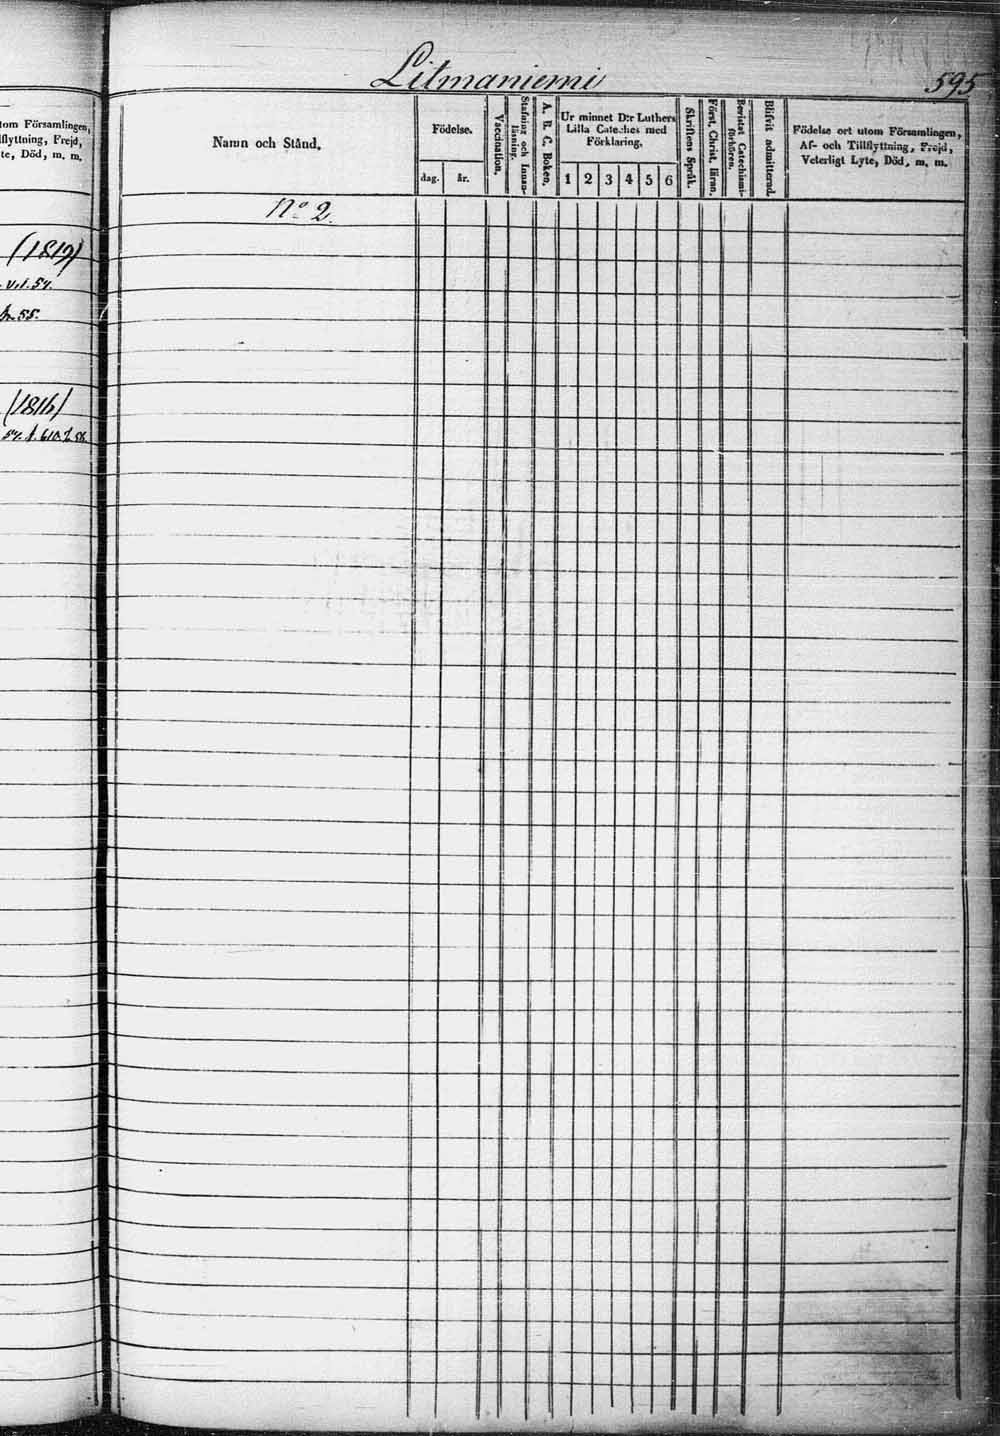 Litmaniemi
595
tom Församlingen,
flyttning, Frejd,
te, Död, m. m.
(1819)
54.
55.
(1816)
Namn och Stånd.
Födelse.
dag.
år.
Vaccination.
Stafning och Innan-
läsning.
A. B. C. Boken.
Ur minnet D:r Luthers
Lilla Cateches med
Förklaring,
1 2 3 4 5 6
Skriftens Språk.
Först. Christ. läran.
Bevistat Catechismi-
förhören.
Blifvit admitterad.
Födelse ort utom Församlingen,
Af- och Tillflyttning, Frejd,
Veterligt Lyte, Död, m. m.
No 2.